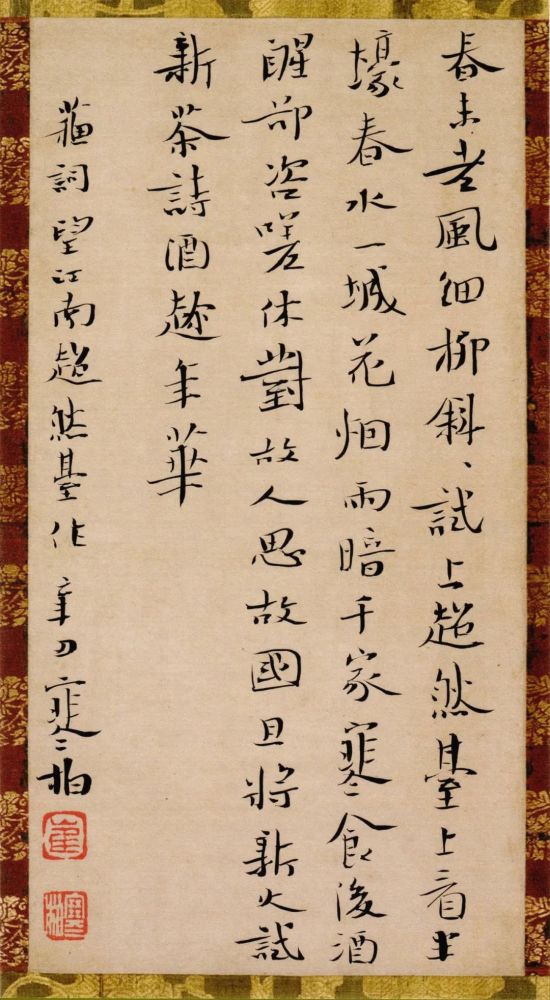 春未老風細柳斜〻試上超然臺上看半
壕春水一城花烟雨暗千家寒食後酒
醒却咨嗟休對故人思故國且將新火試
新茶詩酒趂年華
蘇詞望江南超然臺作 辛丑寒柏
崔